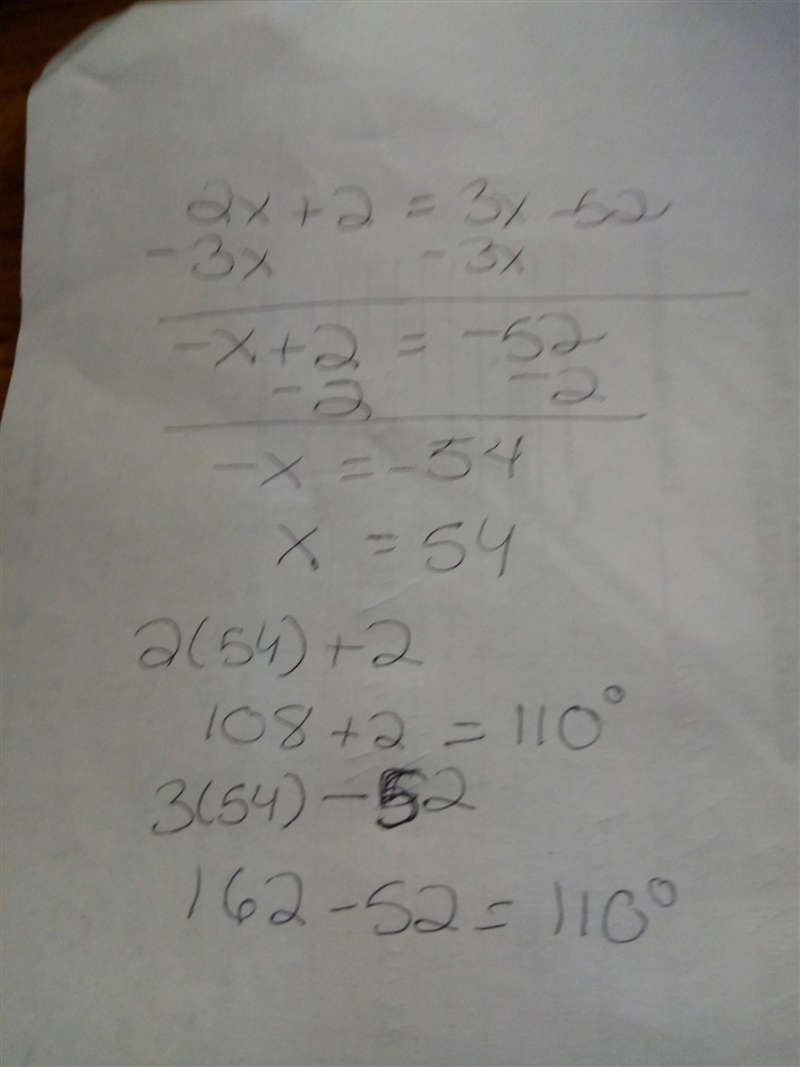 2x + 2 = 3x - 52
- 3x - 3x
-x + 2 = -52
- 2 - 2
-x = -54
x = 54
2(54) + 2
108 + 2 = 110°
3(54) - 52
162 - 52 = 110°